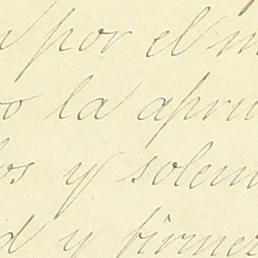 por el
la apru
os y solem
d y firmez